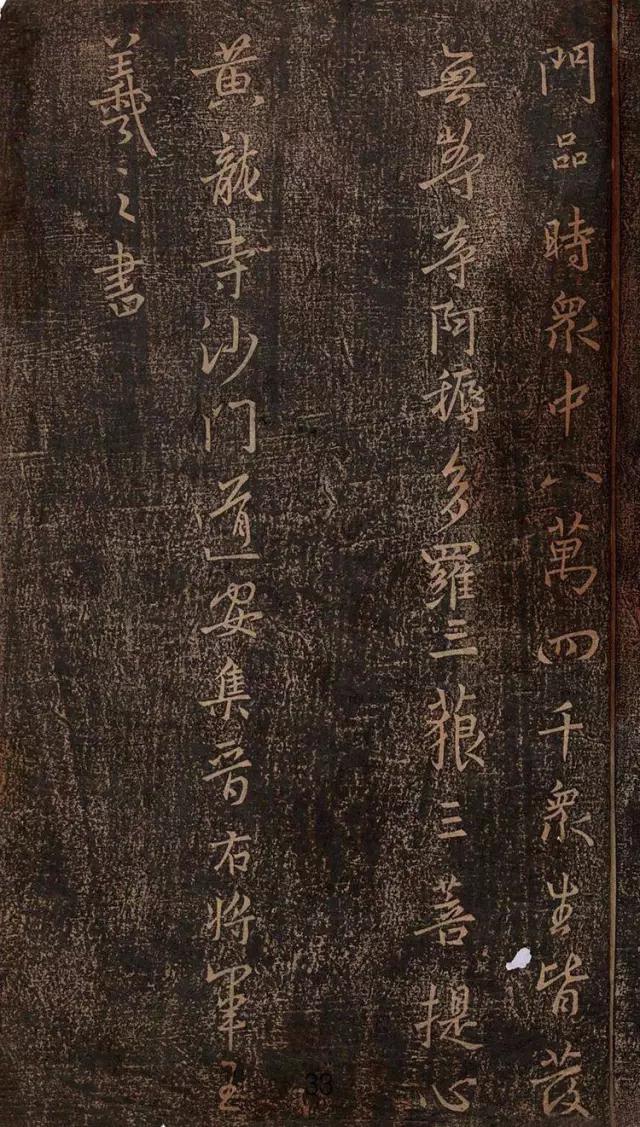 門品時衆中八萬四千衆生皆發
無等等阿耨多羅三藐三菩提心
黄龍寺沙门道安集晉右將軍王
羲之書
33